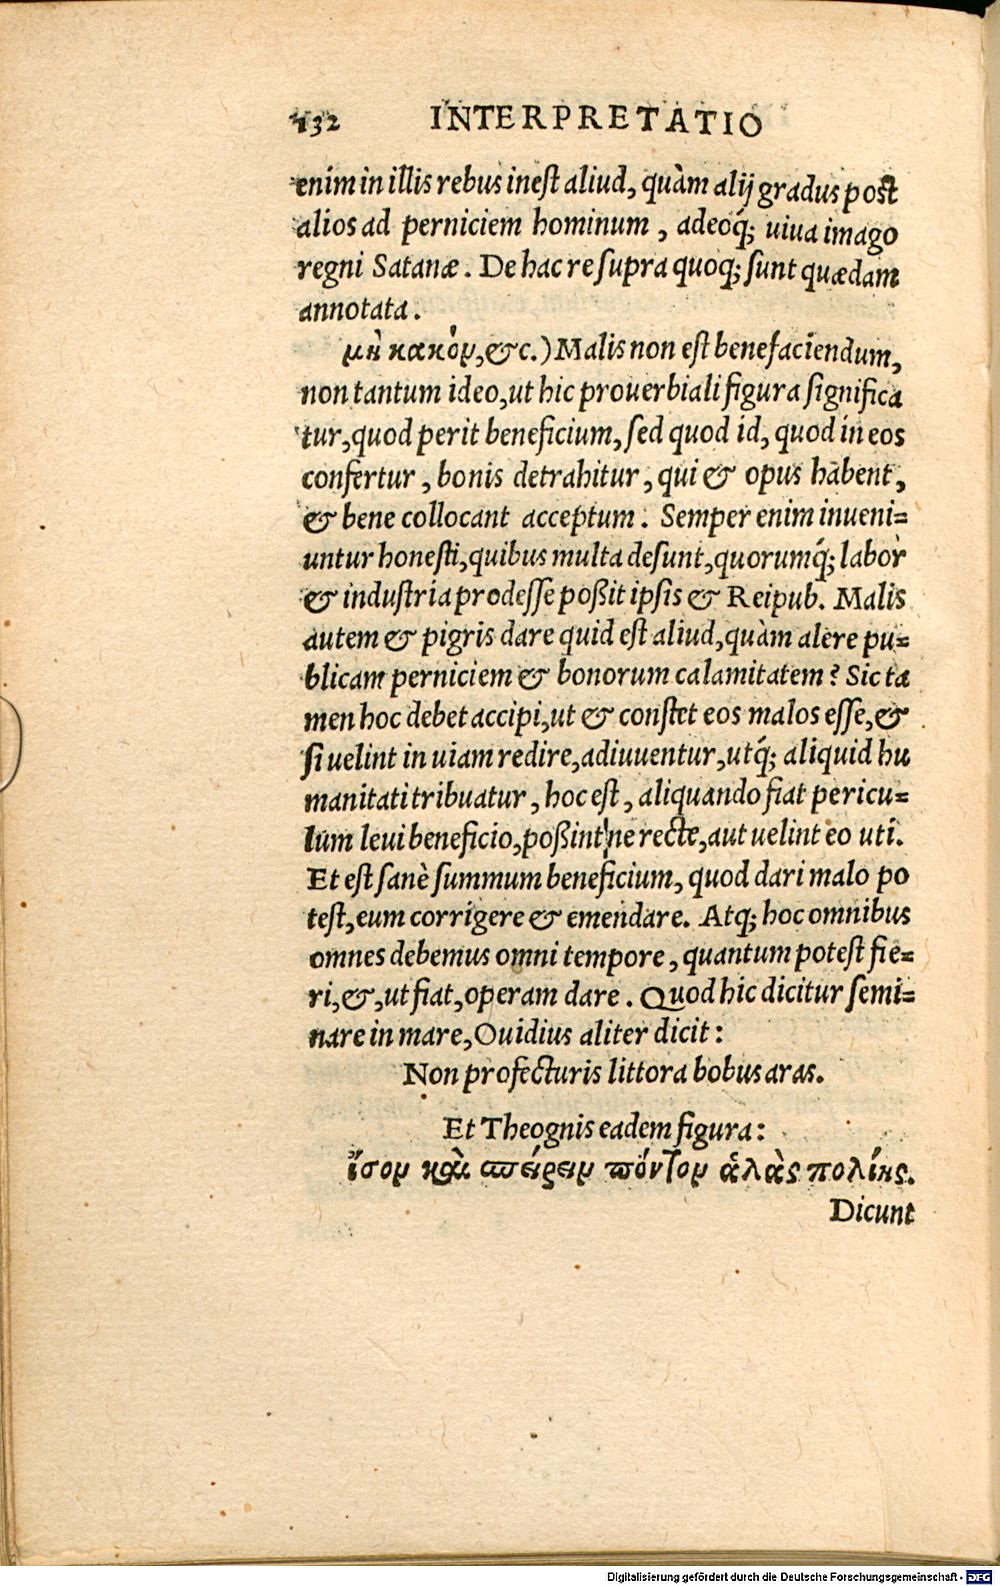 132 INTERPRETATIO
enim in illis rebus inest aliud, quàm alij gradus post
alios ad perniciem hominum, adeoq́; uiua imago
regni Satanæ. De hac re supra quoq; sunt quædam
annotata.
μὴ κακὸν, &c.) Malis non est benefaciendum,
non tantum ideo, ut hic prouerbiali figura significa
tur, quod perit beneficium, sed quod id, quod in eos
confertur, bonis detrahitur, qui & opus habent,
& bene collocant acceptum. Semper enim inueni=
untur honesti, quibus multa desunt, quorumq́; labor
& industria prodesse poßit ipsis & Reipub. Malis
autem & pigris dare quid est aliud, quàm alere pu=
blicam perniciem & bonorum calamitatem? Sic ta
men hoc debet accipi, ut & constet eos malos esse, &
si uelint in uiam redire, adiuuentur, utq́; aliquid hu
manitati tribuatur, hoc est, aliquando fiat pericu=
lum leui beneficio, poßint ne recte, aut uelint eo uti.
Et est sanè summum beneficium, quod dari malo po
test, eum corrigere & emendare. Atq; hoc omnibus
omnes debemus omni tempore, quantum potest fie=
ri, &, ut fiat, operam dare. Quod hic dicitur semi=
nare in mare, Ouidius aliter dicit:
Non profecturis littora bobus aras.
Et Theognis eadem figura:
ἴσον καὶ σπείρειν πόντον ἁλὰς πολιῆς.
Dicunt
Digitalisierung gefördert durch die Deutsche Forschungsgemeinschaft - DFG